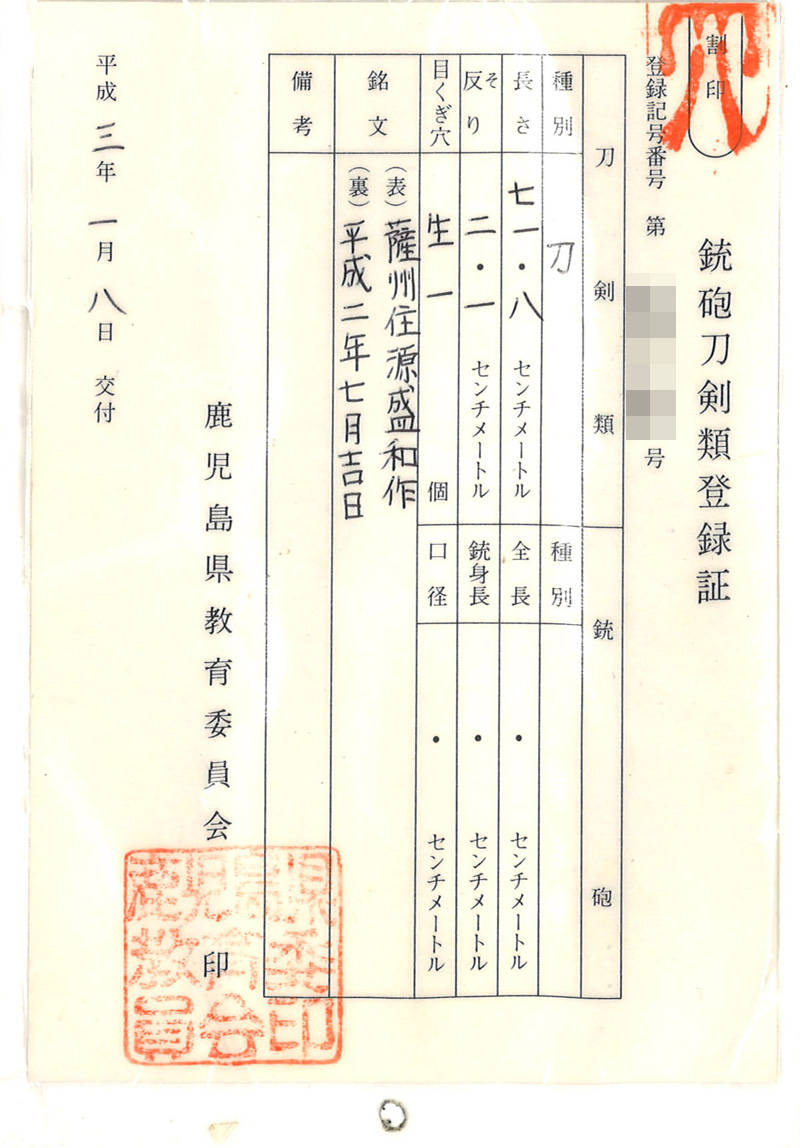 割印
銃砲刀剣類登録証
登録記号番号 第 号
刀剣類
種別 刀
長さ 七一・八 センチメートル
反り そ 二・一 センチメートル
目くぎ穴 生一 個
銘文 (表) 薩州住源盛和作
(裏) 平成二年七月吉日
備考
銃砲
種別
全長 ・ センチメートル
銃身長 ・ センチメートル
口径 ・ センチメートル
平成三年一月八日 交付
鹿児島県教育委員会 印
鹿児島県教育委員会印